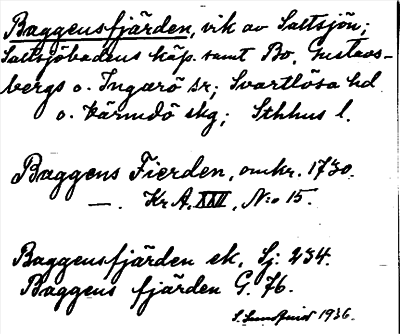 Baggensfjärden, vik av Saltsjön;
Saltsjöbadens köp. samt Bo, Gustavs-
bergs o. Ingarö sr; Svartlösa hd
o. Värmdö skg; Sthlms l.
Baggens Fierden, omkr. 1730.
—. Kr A. XXII, N:o 15.
Baggensfjärden ek. Sj: 234.
Baggens fjärden G. 76.
1936.